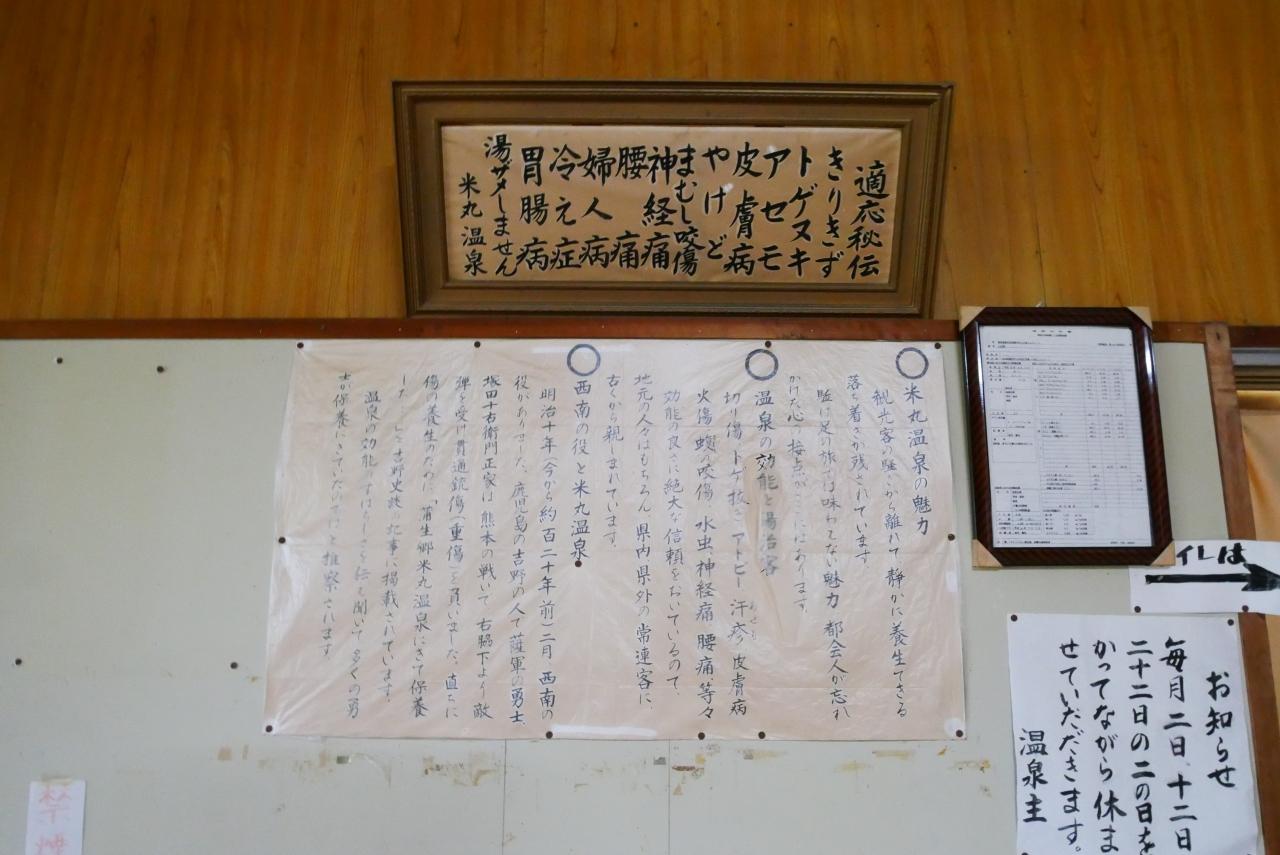 適応秘伝
きりきず
トゲヌキ
アセモ
皮膚病
やけど
まむし咬傷
神経痛
腰痛
婦人病
冷え症
胃腸病
湯ザメしません
米丸温泉
米丸温泉の魅力
観光客の騒さから離れて静かに養生できる
落ち着きが残されています。
駈け足の旅では味わえない魅力 都会人が忘れ
かけた心の接点が にはあります。
温泉の効能と湯治客
切り傷 トゲ抜き アトピー 汗疹 皮膚病
あせも
火傷 蝮の咬傷 水虫 神経痛 腰痛等々
効能の良さに絶大な信頼をおいているので、
地元の人々はもちろん、県内県外の常連客に
古くから親しまれています。
西南の役と米丸温泉
明治十年(今から約百二十年前)二月、西南の
役がありました、鹿児島の吉野の人で薩軍の勇士、
塚田十右衛門正家は熊本の戦いで右脇下より敵
弾を受け貫通銃傷(重傷)を負いました。直ちに
傷の養生のために「蒲生郷米丸温泉にきて保養
した 」と吉野史談の記事に掲載されています。
温泉の効能のすばらしさを伝え聞いて多くの勇
士が保養にきていたので 推察されます。
イレは
お知らせ
毎月二日、十二日
二十二日の二の日を
かってながら休ま
せていただきます。
温泉主
禁煙